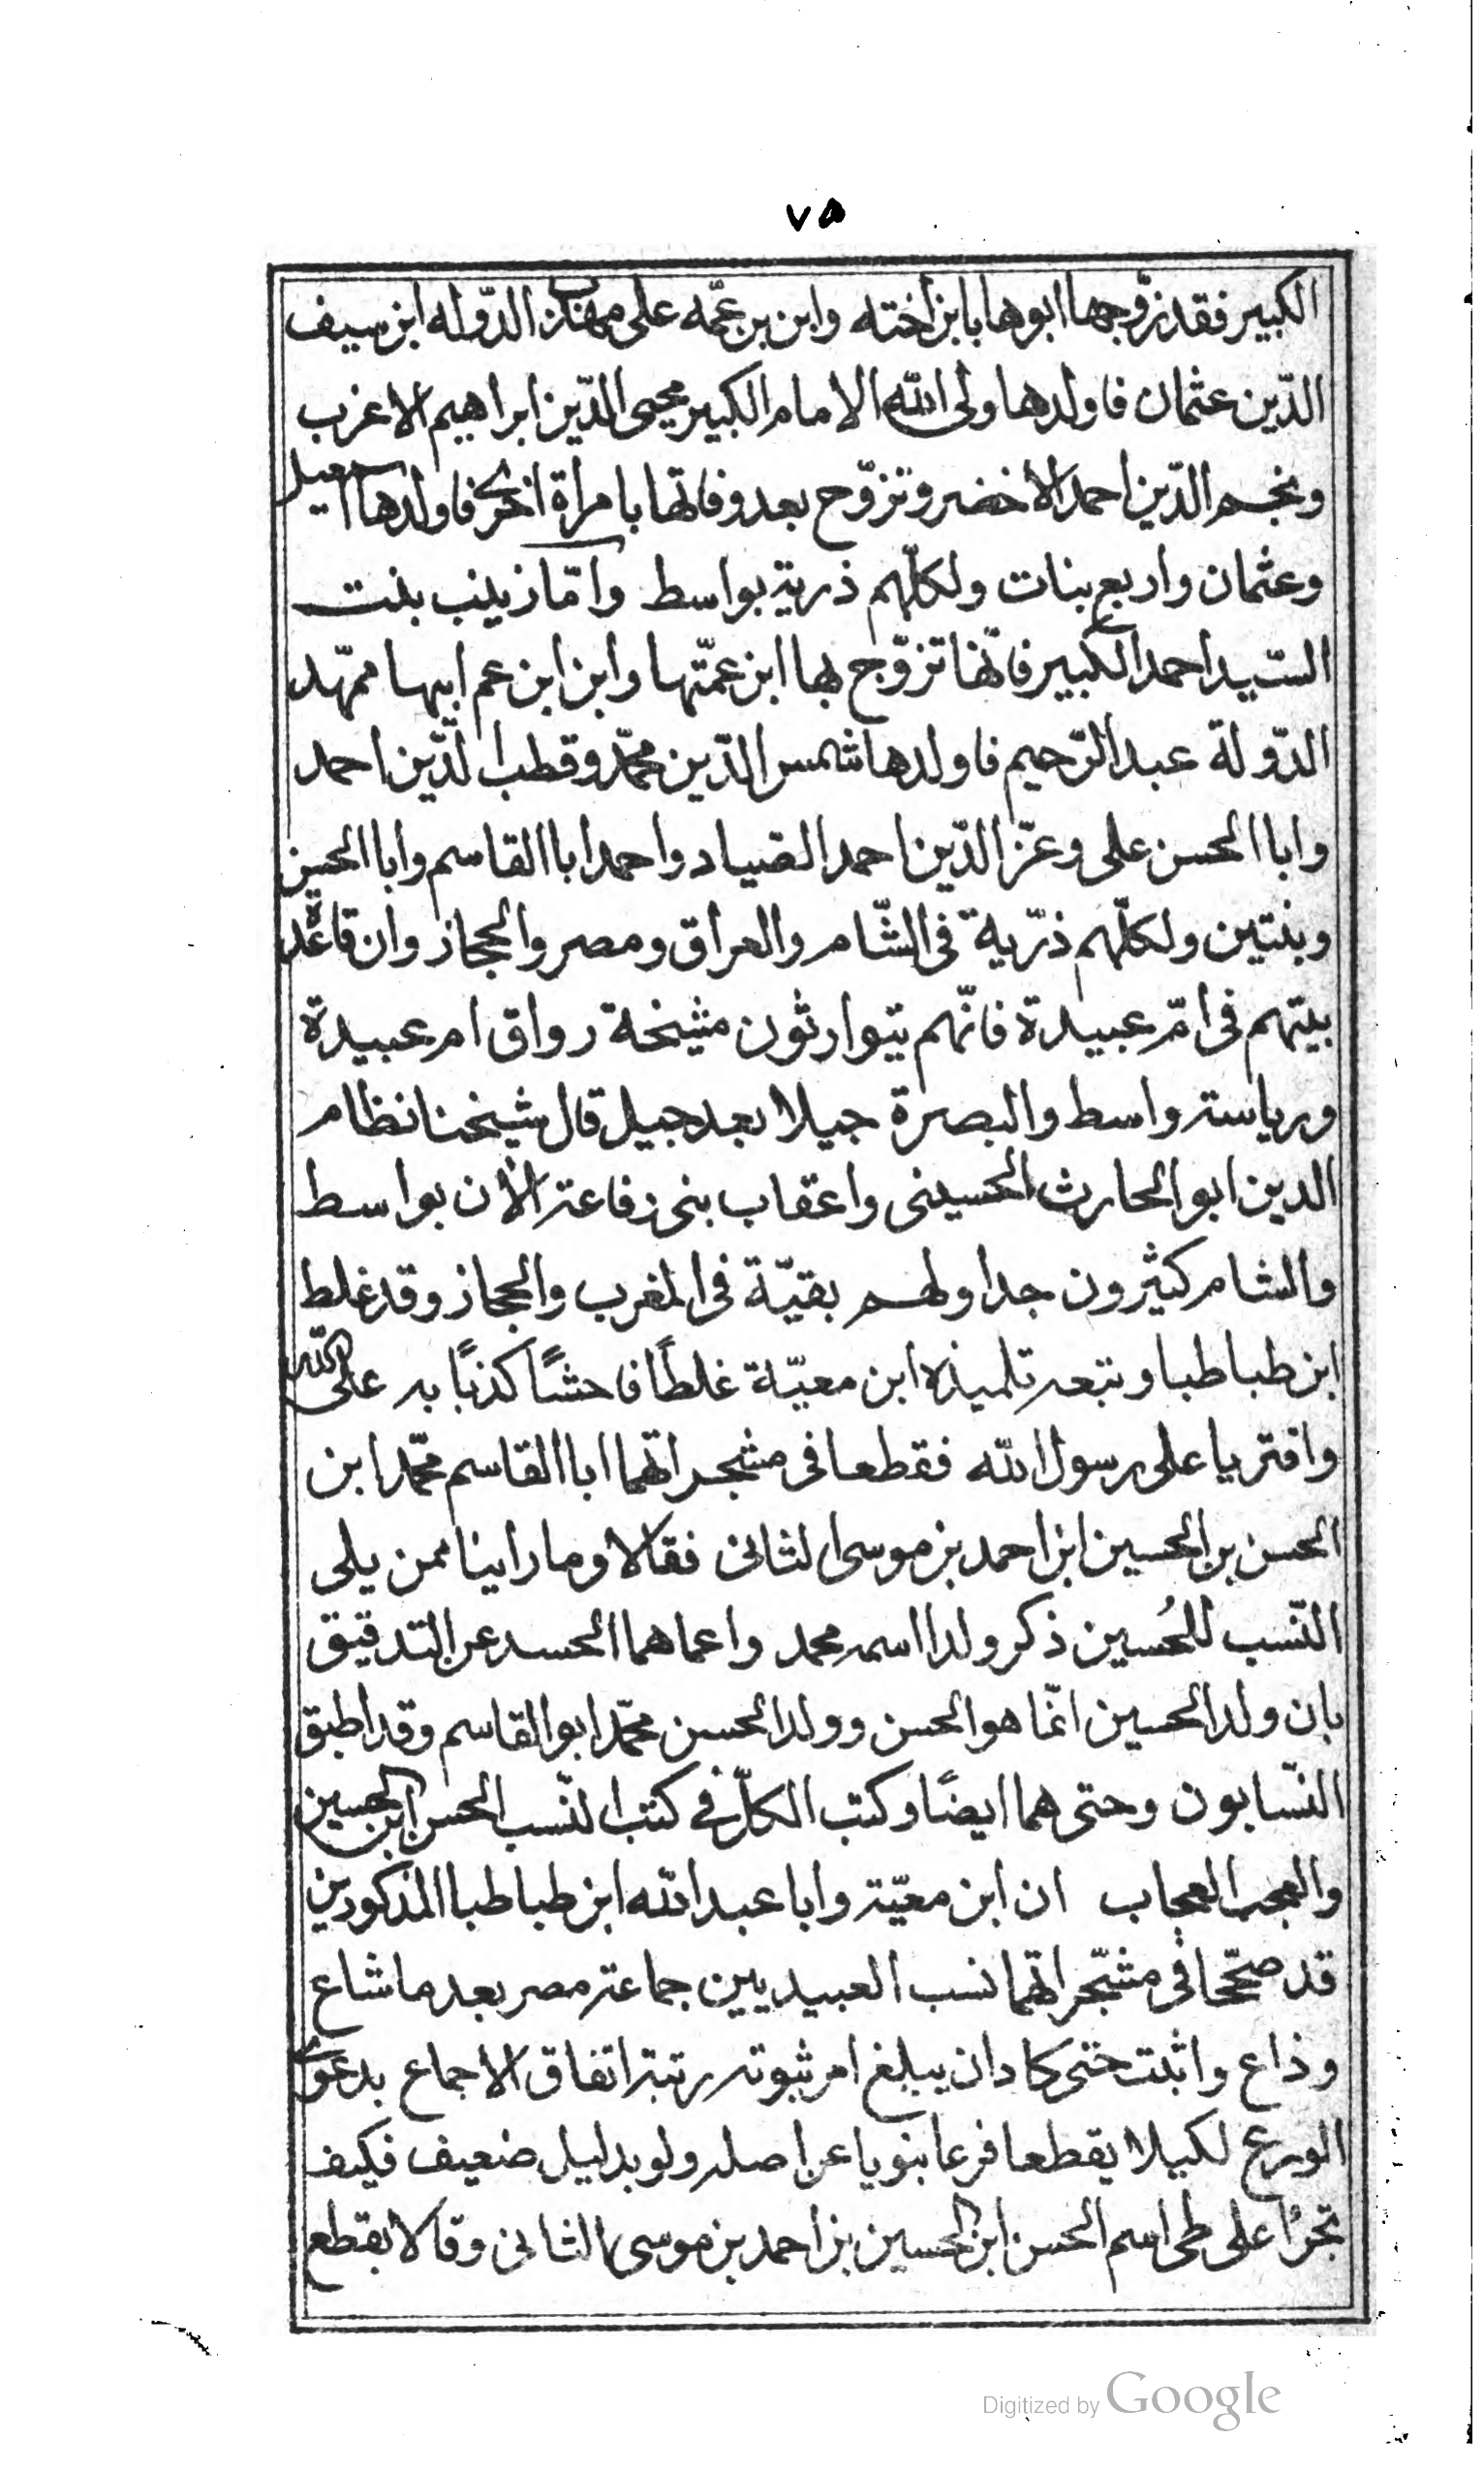 ٧٥
الكبير فقد زوّجها ابوها بابن اخته وابن بن عمّه على مهذب الدّوله ابن سيف
الدّين عثمان فاولدها ولى الله الامام الكبير محيى الدّين ابراهيم الاعزب
ونجم الدّين احمد الاخضر وتزوّج بعد وفاتها بامراة اخرى فاولدها اسمعيل
وعثمان واربع بنات ولكلّهم ذرية بواسط وامّا زينب بنت
السّيد احمد الكبير فانّها تزوّج بها ابن عمّتها وابن ابن عم ابيها ممهّد
الدّولة عبد الرّحيم فاولدها شمس الدّين محمّد وقطب الدّين احمد
وابا الحسن على وعزّ الدّين احمد الصياد واحمد ابا القاسم وابا الحسن
وبنتين ولكلّهم ذرّية فى الشّام والعراق ومصر والحجاز وان قاعدة
بيتهم فى امّ عبيدة فانّهم يتوارثون مشيخة رواق ام عبيدة
ورياسة واسط والبصرة جيلا بعد جيل قال شيخنا نظام
الدين ابو الحارث الحسينى واعقاب بنى رفاعة الأن بواسط
والشام كثيرون جدا ولهم بقيّة فى المغرب والحجاز وقد غلط
ابن طباطبا وتبعه تلميذه ابن معيّة غلطًا فاحشًا كذبًا به على الله
وافتريا على رسول الله فقطعا فى مشجراتهما ابا القاسم محمّد ابن
الحسن بن الحسين ابن احمد بن موسى الثانى فقالا وما راينا ممن يلى
النّسب للحُسين ذكر ولدا اسمه محمد واعماهما الحسد عن التدقيق
بان ولد الحسين انّما هو الحسن وولد الحسن محمّد ابو القاسم وقد اطبق
النّسابون وحتى هما ايضًا وكتب الكلّ فى كتب النّسب الحسن ابن الحسين
والعجب العجاب ان ابن معيّة وابا عبد الله ابن طباطبا المذكورين
قد صحّحا فى مشجّراتهما نسب العبيديين جماعة مصر بعد ما شاع
وذاع واثبت حتى كاد ان يبلغ امر ثبوته رتبة اتفاق الاجماع بدعوى
الورع لكيلا يقطعا فرعا بنويا عن اصله ولو بدليل ضعيف فكيف
تجرّا على طى اسم الحسن ابن الحسين بن احمد بن موسى الثانى وقالا بقطع
Digitized by Google